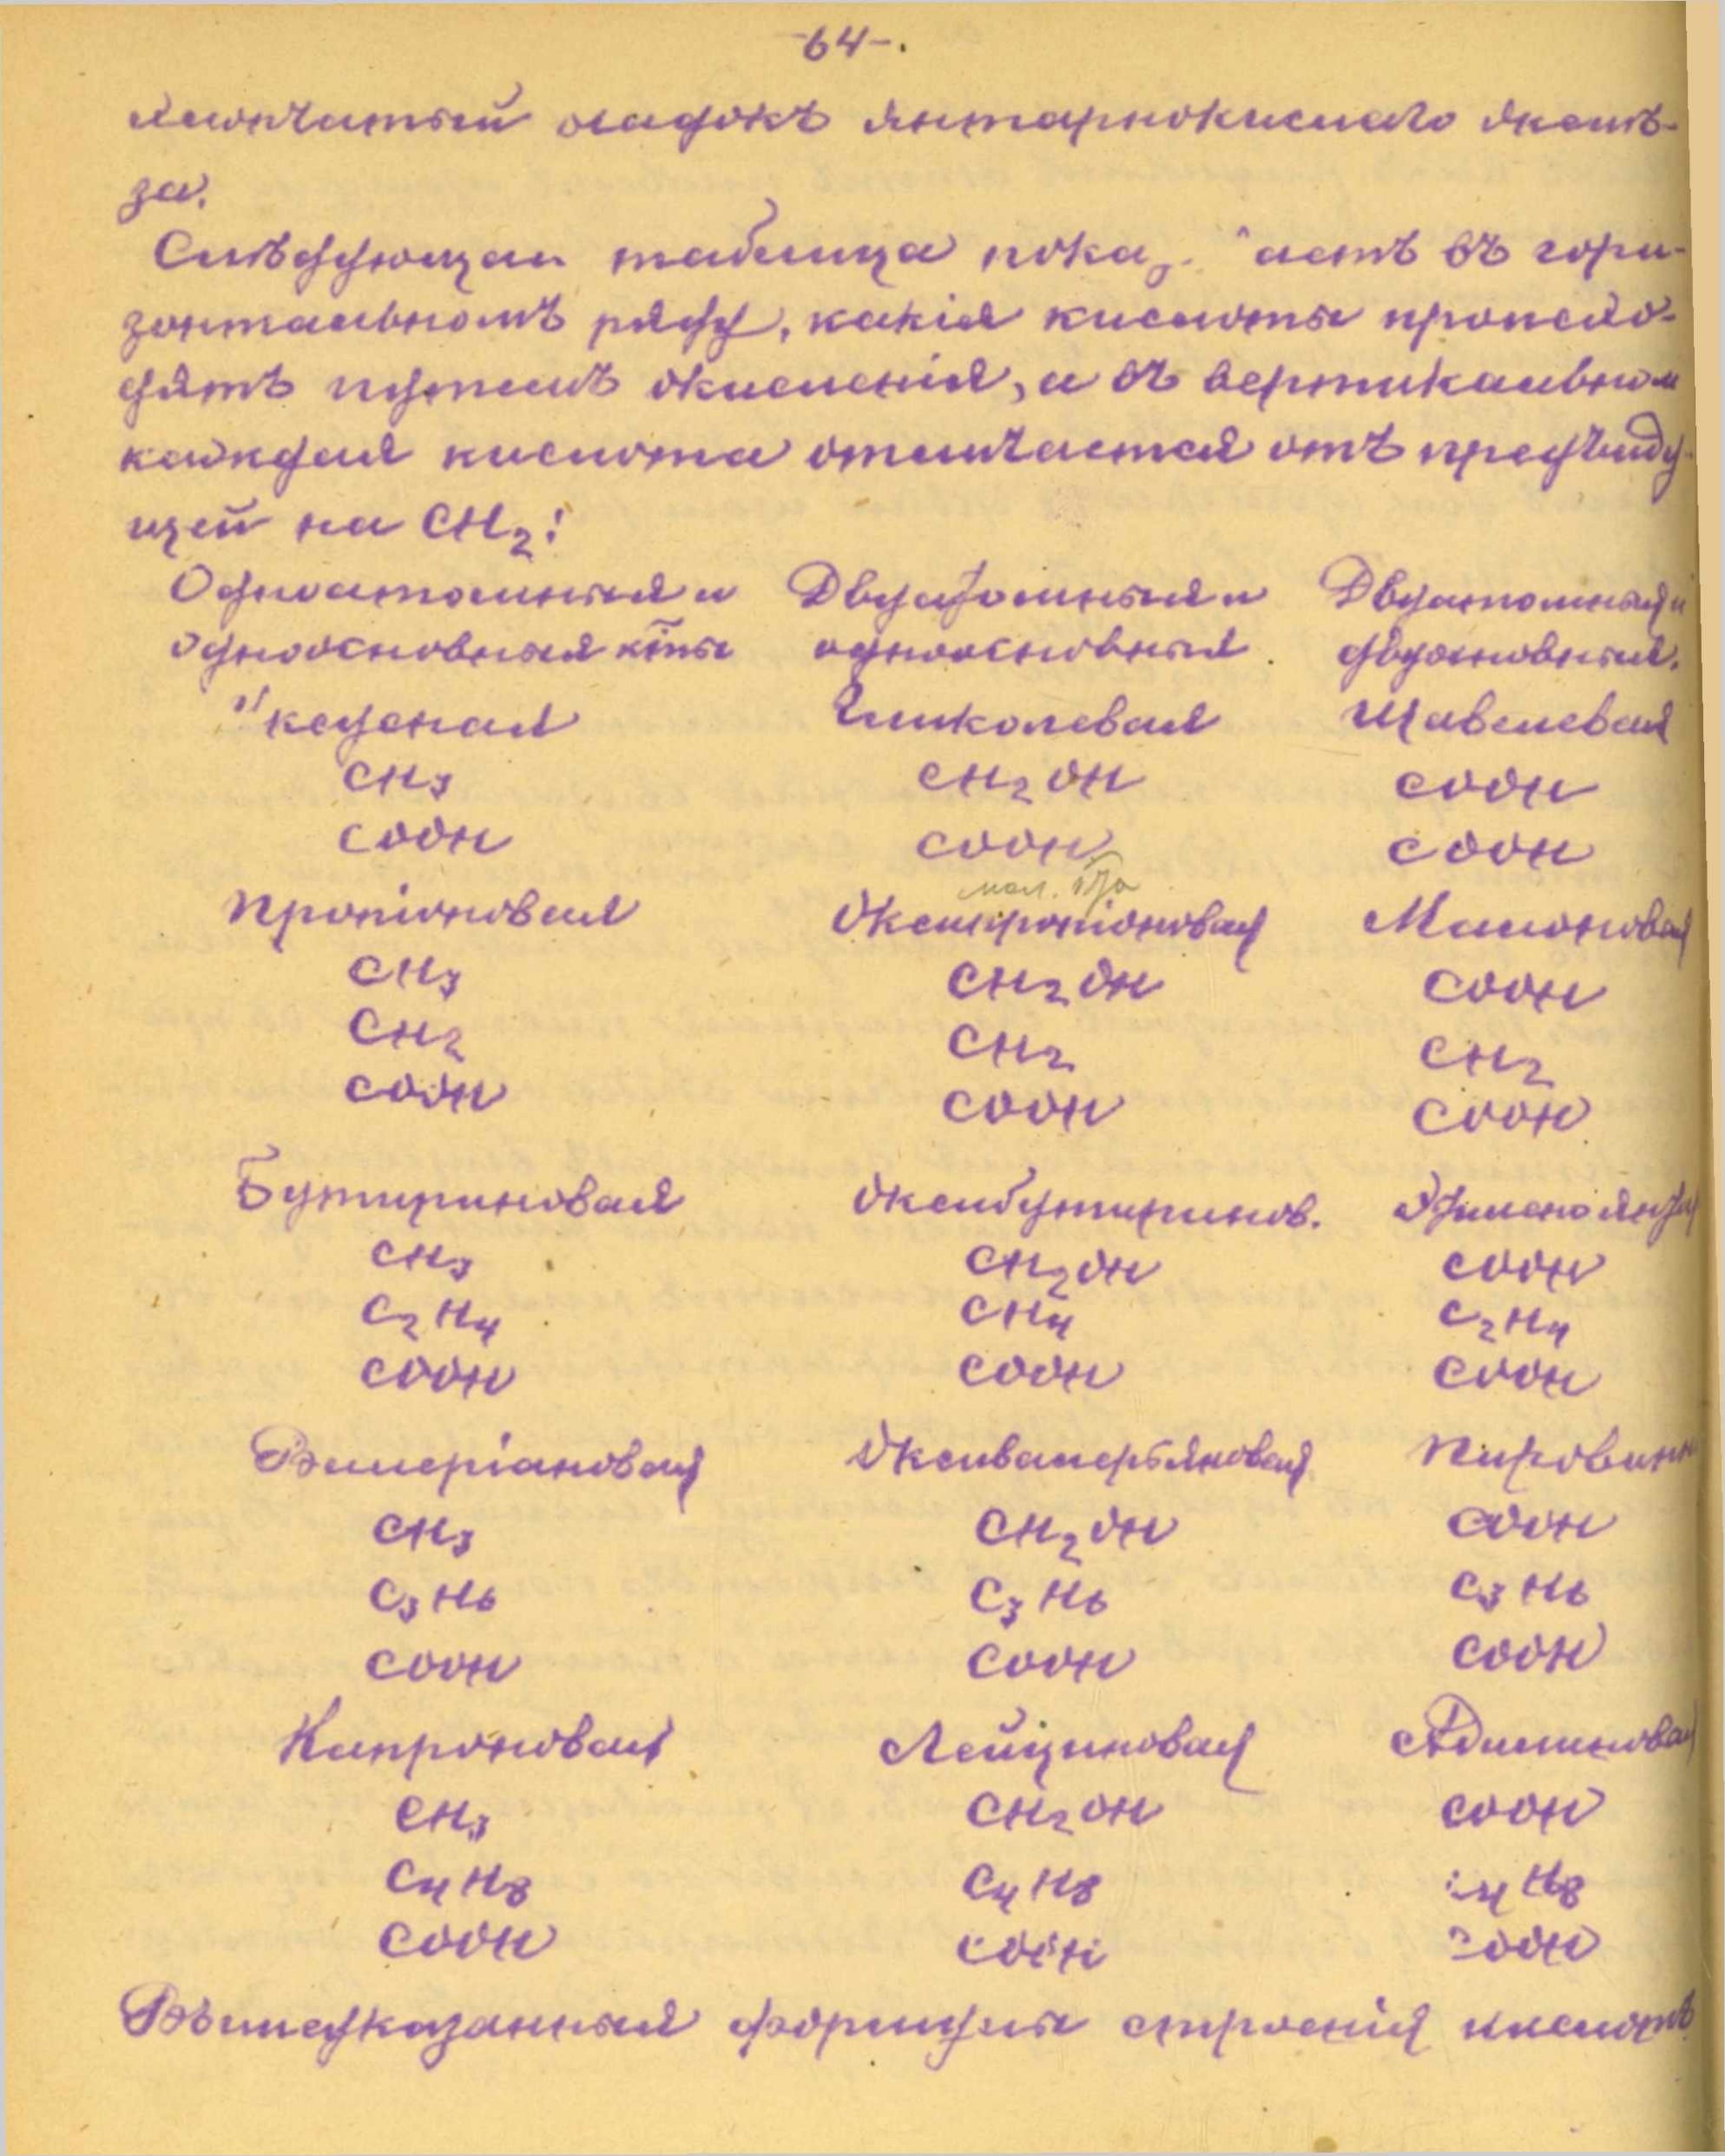 -64-.
хлопчатый осадокъ янтарнокислаго желѣ-
за.
Слѣдующая таблица пока аетъ въ гори-
зонтальномъ ряду, какія кислоты происхо-
дятъ путемъ окисленія, а въ вертикальном
каждая кислота отличается отъ предъиду-
щей на CH2:
Одноатомныя и Двуатомныя и Двуатомныя и
одноосновныя к̅ты одноосновныя. двуосновныя.
Уксусная Гликолевая Щавелевая
CH3 CH2OH COOH
COOH COOH COOH
мол.
Пропіоновая Оксипропіоновая Малоновая
CH3 CH2OH COOH
CH2 CH2 CH2
COOH COOH COOH
Бутириновая Оксибутиринов. Этиленоянт
CH3 CH2OH COOH
C2H4 CH4 C2H4
COOH COOH COOH
Валеріановая Оксивалерьяновая Пировинн
CH3 CH2OH COOH
C3H6 C3H6 C3H6
COOH COOH COOH
Капроновая Лейциновая Адипиновая
CH3 CH2OH COOH
C4H8 C4H8 C4H8
COOH COOH COOH
Вышеуказанныя формулы строенія кислотъ